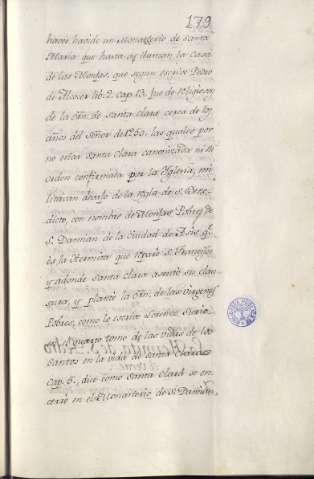 179
haver havido un Monasterio de Santa
Maria que hasta oy llaman la Casa
de las Monjas, que segun escrive Pedro
de Alcocer lib. 2. cap. 13. fue de Religiosas
de la Orn. de Santa Clara cerca de los
años del Señor de 1250. las quales por
no estar Santa Clara canonizada ni su
orden confirmada por la Iglesia, mi
litavan debaxo de la regla de S. Bene
dicto, con nombre de Monjas Pobres de
S. Damian de la Ciudad de Asis q.
es la Hermita que reparó S. Francisco
y adonde Santa Clara asentó su clau
sura, y plantó la Orn. de las Virgenes
Pobres, como lo escrive Lorenzo Surio
quarto tomo de las vidas de los
Santos en la vida de Santa Clara
cap. 5., dice como Santa Clara se en
cerró en el Monasterio de S. Damian,